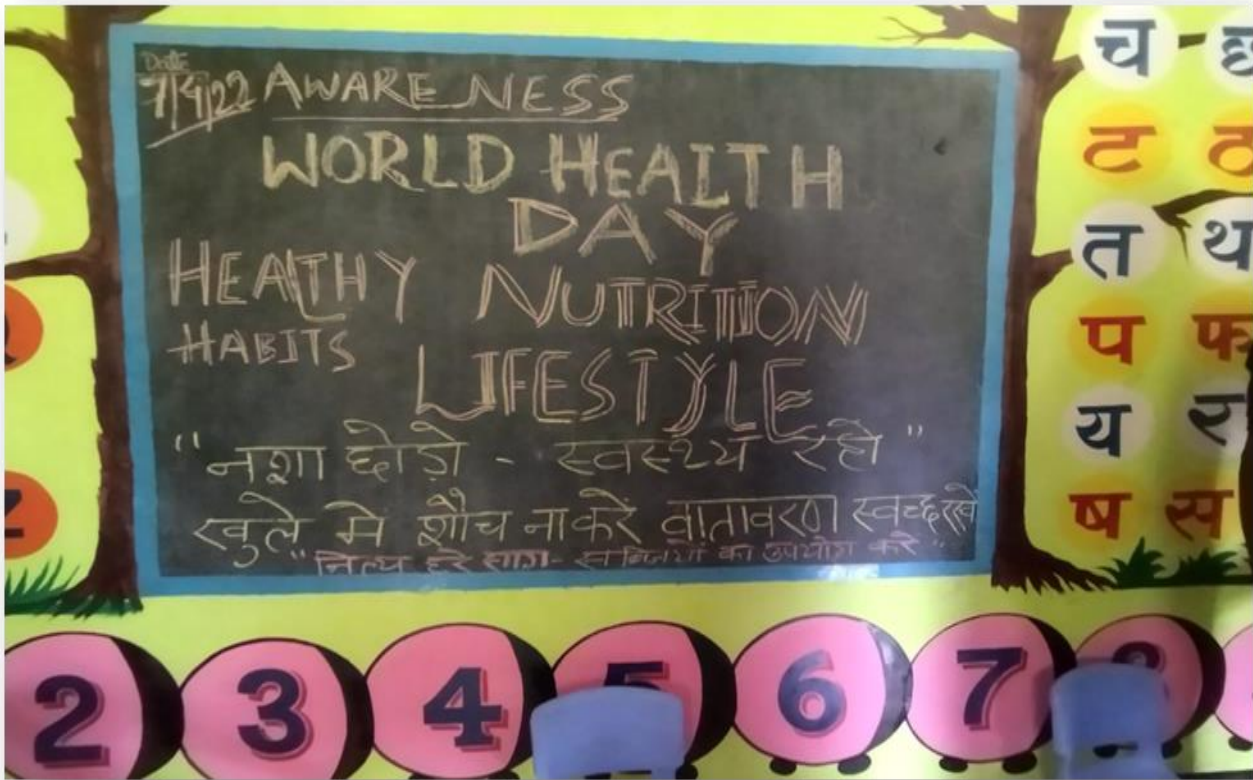 Date
7/4/22 AWARENESS
WORLD HEALTH
DAY
HEALTHY NUTRITION
HABITS
LIFESTYLE
"नशा छोड़ो - स्वस्थ्य रहो"
खुले मे शौच ना करें वातावरण स्वच्छ रखें
"नित्य हरे साग-सब्जियों का उपयोग करे"
च छ
ट ठ
त थ
प फ
य र
ष स
2 3 4 5 6 7 8